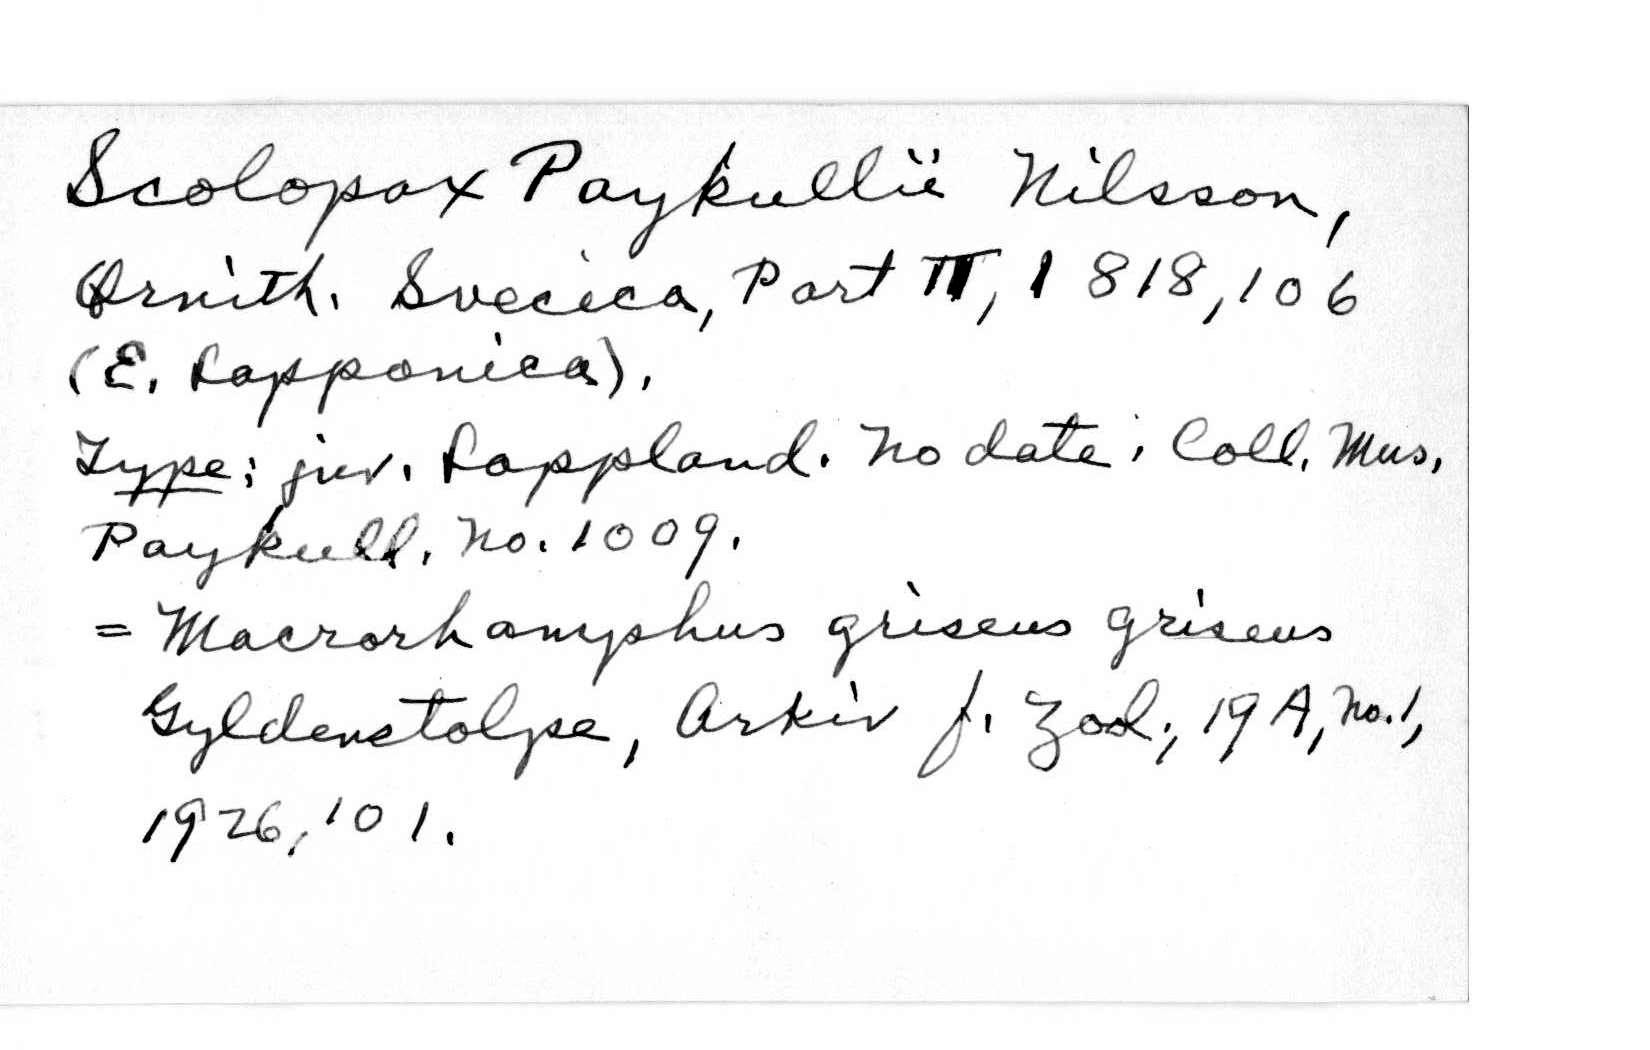 Scolopax Paykullii Nilsson,
Ornith. Svecica, Part II, 1818, 106
(E. Lapponica).
Type; juv. Lappland. No date. Coll. Mus.
Paykull. No. 1009.
= Macrorhamphus griseus griseus
Gyldenstolpe, Arkiv f. Zool., 19A, No. 1,
1926, 101.